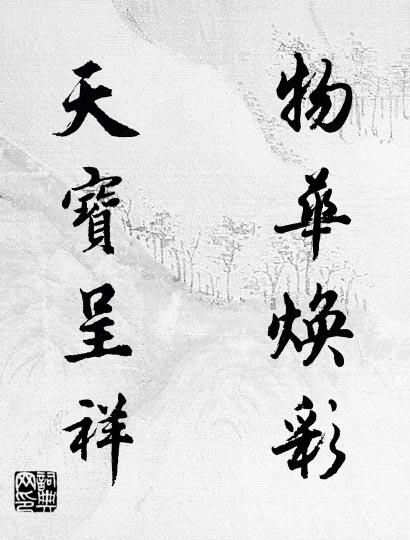 物華焕彩
天寶呈祥
詞典網印